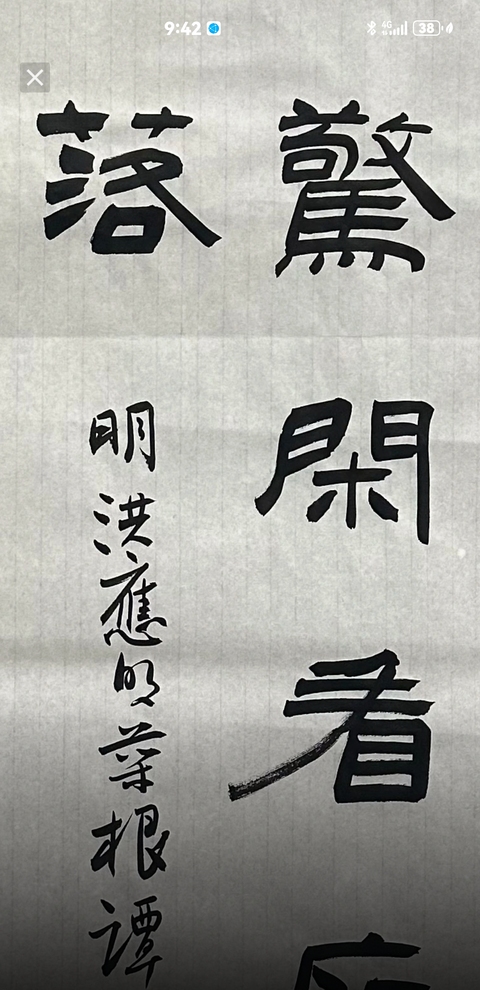 9:42
4G
38
驚閑看
落
明洪應明菜根譚